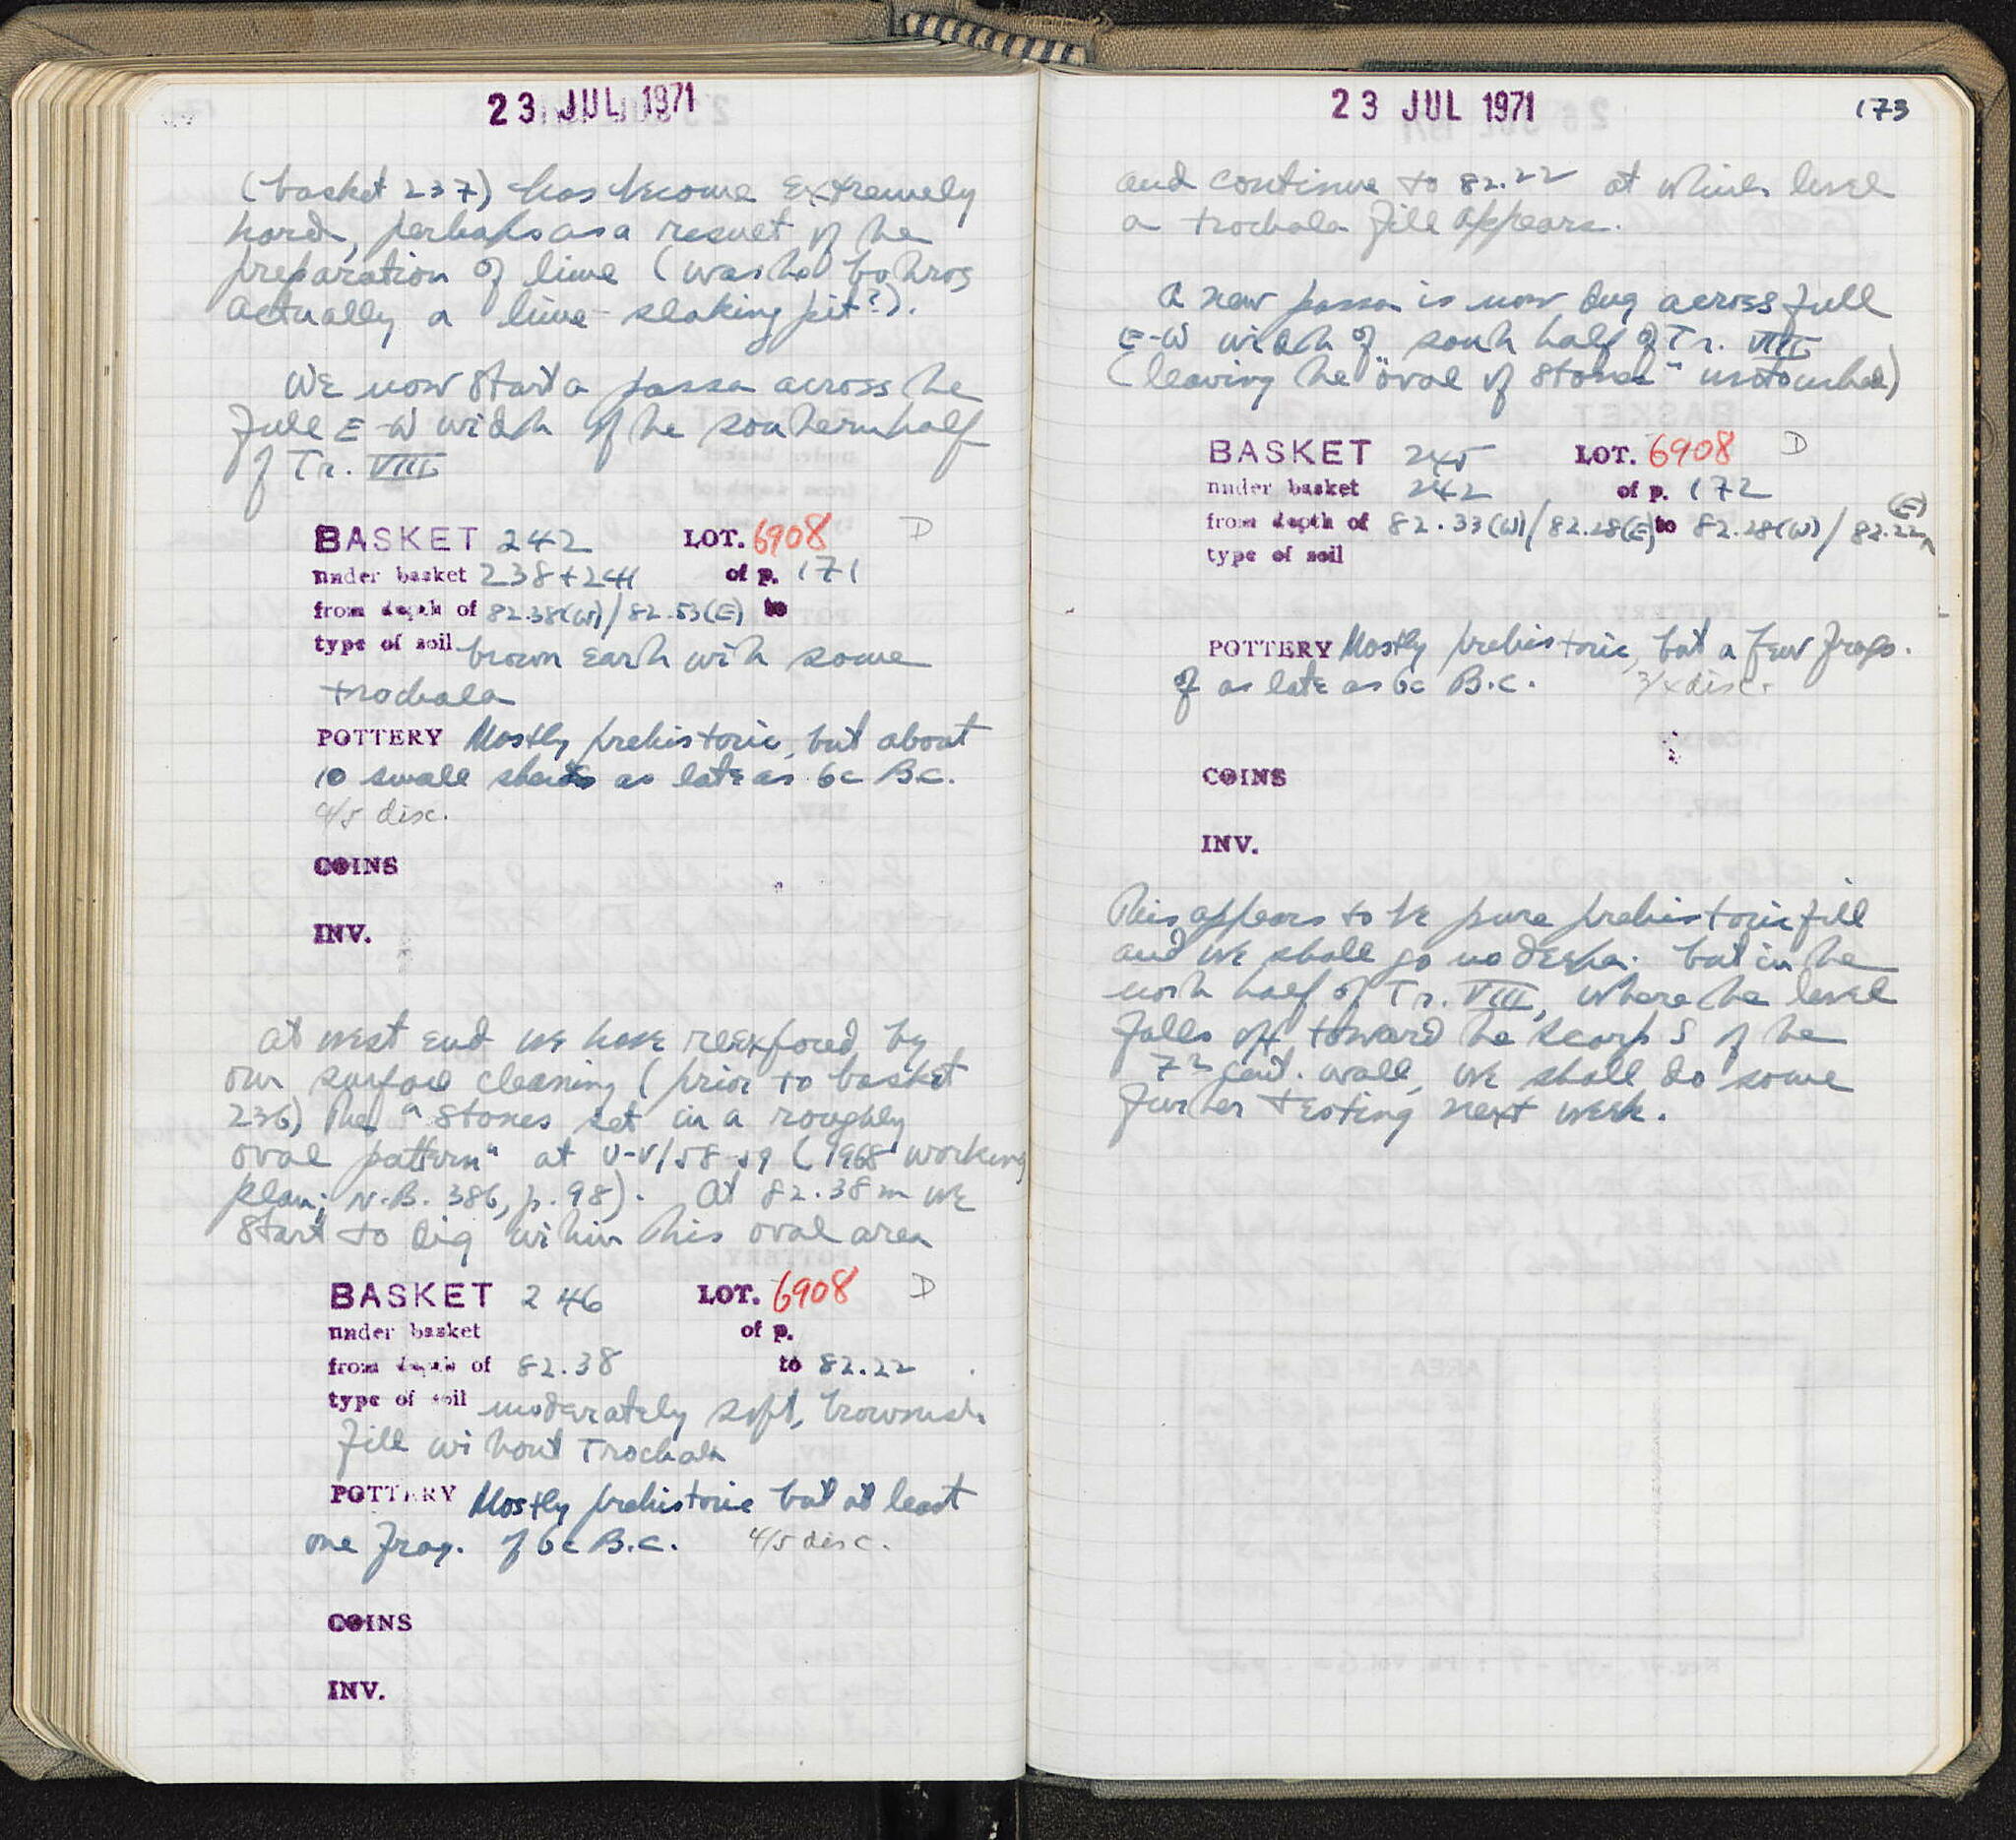 23 JUL 1971
(basket 237) has become extremely
hard, perhaps as a result of the
preparation of lime (was the bothros
actually a lime-slaking pit?).
We now start a passa across the
full E-W width of the southern half
of Tr. VIII
BASKET 242 LOT. 6908 D
under basket 238+241 of p. 171
from depth of 82.38(W)/82.53(E) to
type of soil brown earth with some
trochala
POTTERY Mostly prehistoric, but about
10 small sherds as late as 6c B.C.
4/5 disc.
COINS
INV.
At west end we have reexposed by
our surface cleaning (prior to basket
236) the "stones set in a roughly
oval pattern" at U-V/58-59 (1968 working
plan; N.B. 386, p. 98). At 82.38m we
start to dig within this oval area
BASKET 246 LOT. 6908 D
under basket of p.
from depth of 82.38 to 82.22
type of soil moderately soft, brownish
fill without trochala
POTTERY Mostly prehistoric but at least
one frag. of 6c B.C. 4/5 disc.
COINS
INV.
23 JUL 1971 173
and continue to 82.22 at which level
a trochala fill appears.
A new passa is now dug across full
E-W width of south half of Tr. VIII
(leaving the "oval of stones" untouched)
BASKET 245 LOT. 6908 D
under basket 242 of p. 172
from depth of 82.33(W)/82.28(E) to 82.28(W)/82.22(E)
type of soil
POTTERY Mostly prehistoric, but a few frags.
of as late as 6c B.C. 3/4 disc.
COINS
INV.
This appears to be pure prehistoric fill
and we shall go no deeper. But in the
north half of Tr. VIII, where the level
falls off toward the scarp S of the
7th cent. wall, we shall do some
further testing next week.